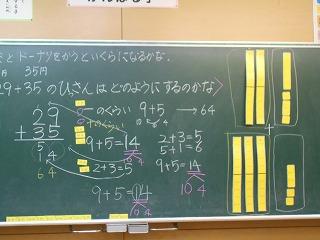 とドーナツをかうといくらになるかな。
円 35円
29+35のひっさんはどのようにするのかな
29
+35
51 4
64
一のくらい 9+5 → 64
十のくらい
9+5=14
10 4
2+3=5
2+3=5
5+1=6
9+5=14
10 4
9+5=14
10 4
+